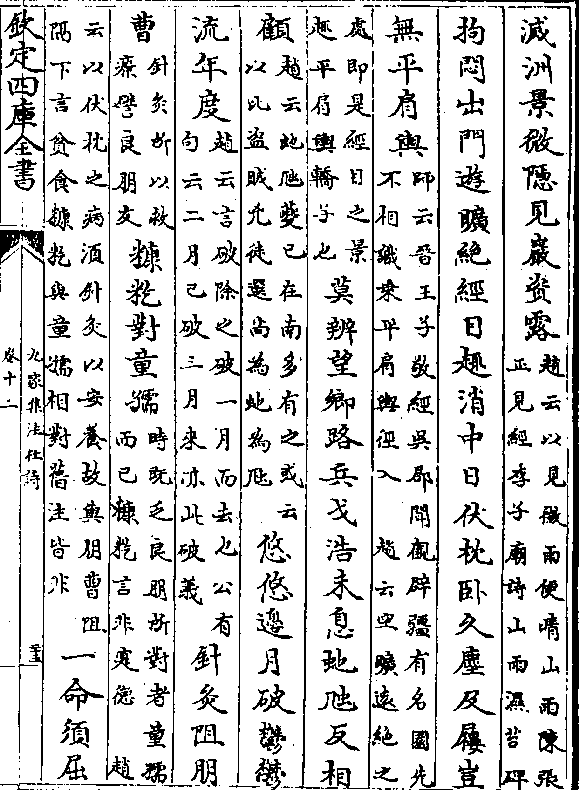 滅洲景微隱見巖姿露趙云以見微雨便晴山雨陳張正見經季子廟詩山雨濕苔碑
拘悶出門遊曠絕經目趣消中日伏枕卧久塵及屨豈
無平肩輿師云晉王子敬經吳郡聞顧辟疆有名園先不相識乘平肩輿徑入 趙云空曠遠絕之
處即是經目之景趣平肩輿轎子也莫辨望鄉路兵戈浩未息虵虺反相
顧趙云虵虺夔已在南多有之或云以比盜賊凶徒選尚為虵為虺悠悠邊月破鬱鬱
流年度趙云言破除之破一月而去也公有句云二月已破三月來亦此破義針灸阻朋
曹針灸所以救療譬良朋友糠籺對童孺時既乏良朋所對者童孺而已糠籺言非寔德 趙
云以伏枕之病須針灸以安養故與朋曹阻隔下言貧食糠籺與童孺相對舊注皆非一命須屈
欽定四庫全書
九家集注杜詩
卷十二